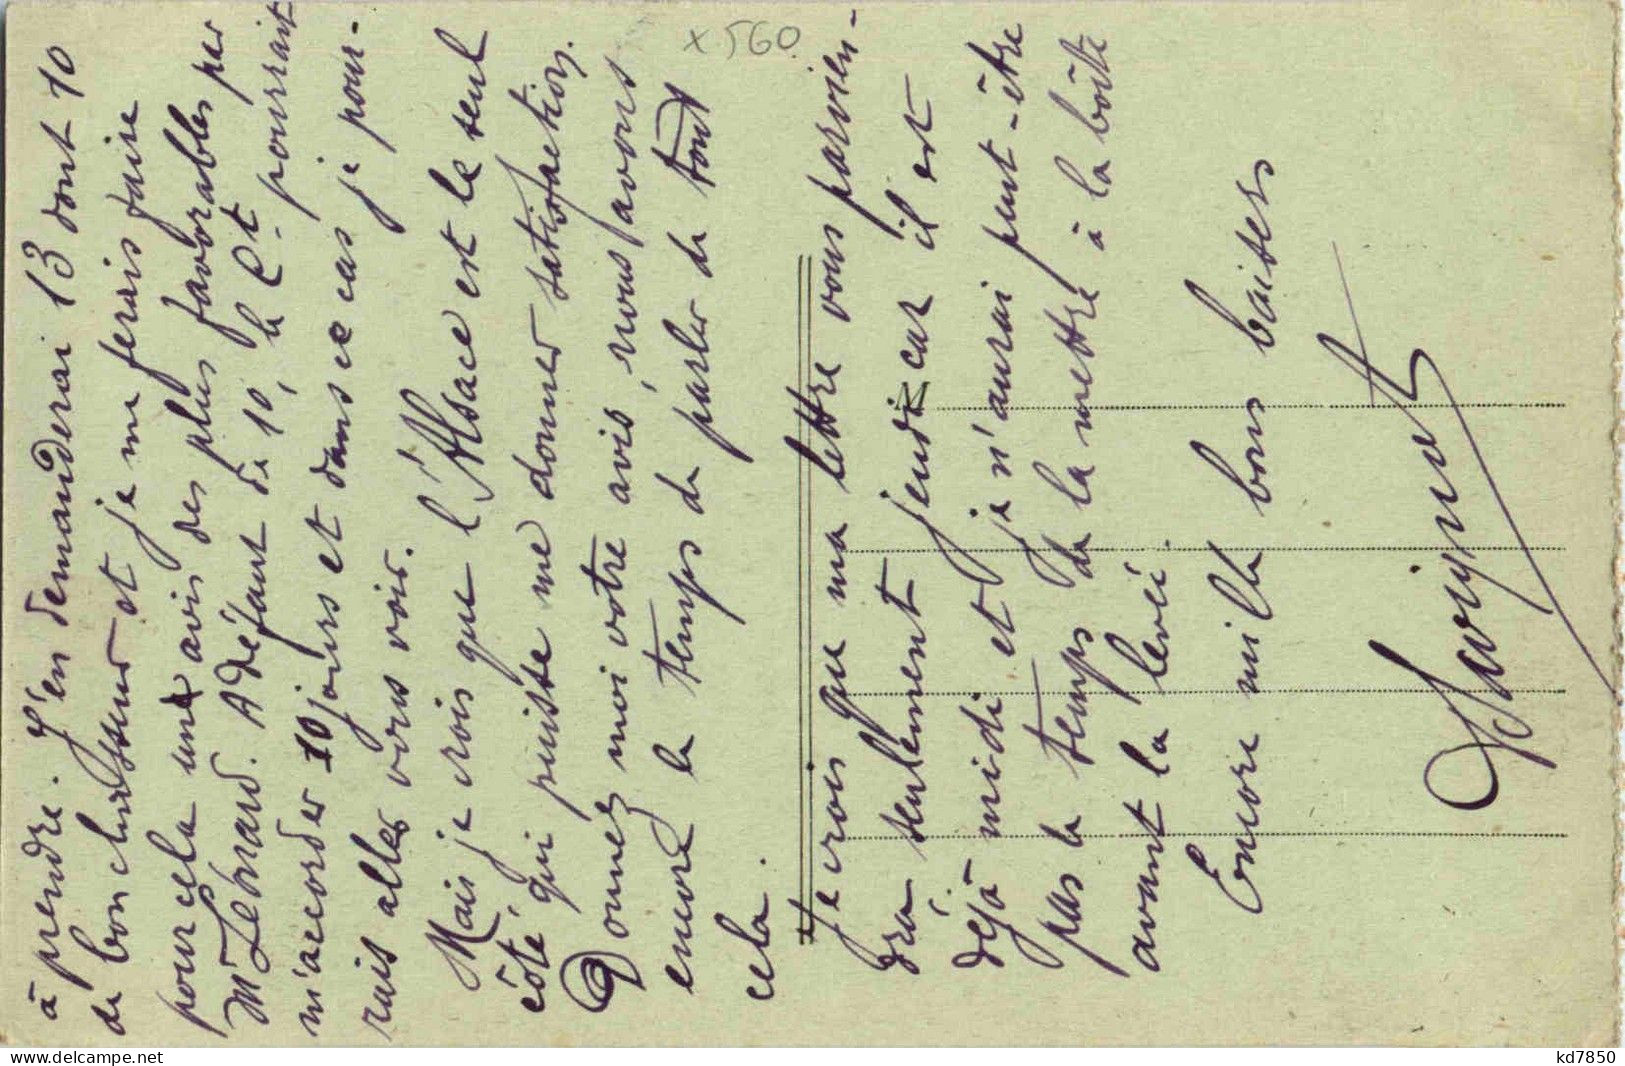 x 560
à prendre. J'en demanderai 13 dont 10
de bon chasseur et je me ferais faire
pour cela un avis des plus favorables par
Mr Lenard. A défaut de 10, le Ct. pourrait
m'accorder 10 jours et dans ce cas je pour-
rais aller vous voir.
Mais je crois que l'Alsace est le seul
côté, qui puisse me donner satisfaction.
Donnez moi votre avis, nous avons
encore le temps de parler de tout
cela.
Je crois que ma lettre vous parvien-
dra seulement jeudi car il est
déjà midi et je n'aurai peut-être
pas le temps de la mettre à la boîte
avant la levée.
Encore mille bons baisers
www.delcampe.net
kd7850